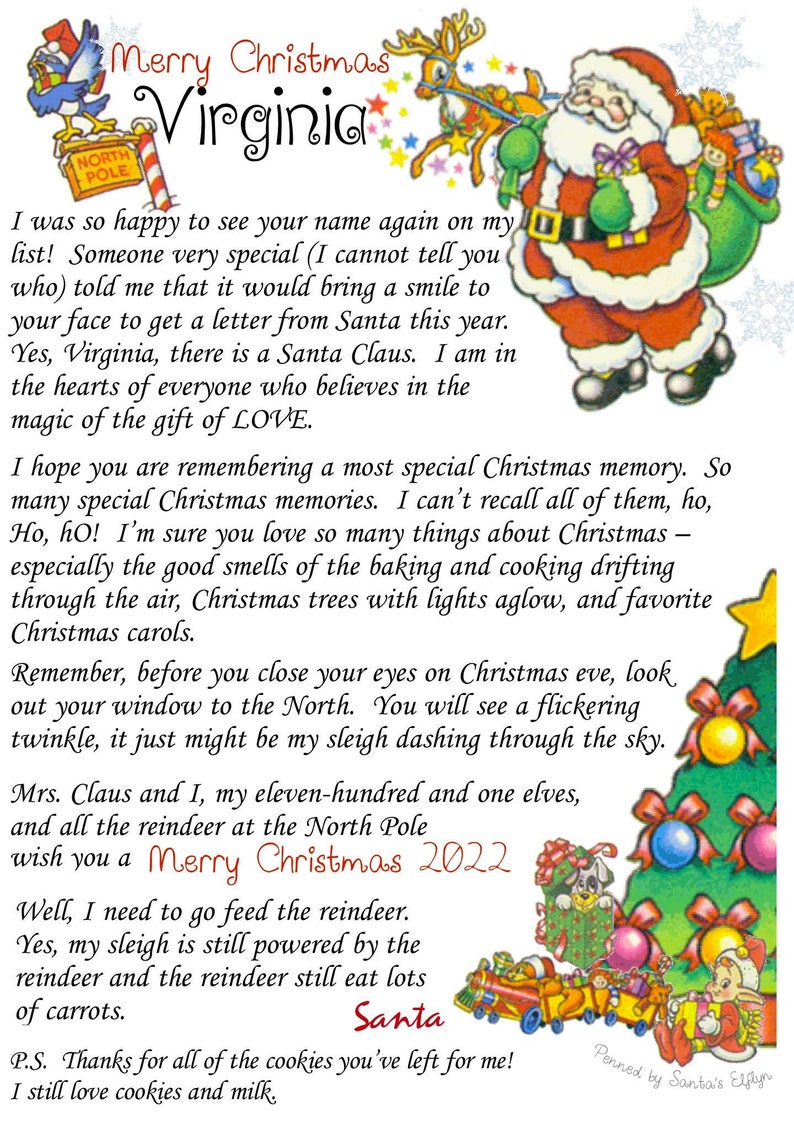 Merry Christmas
Virginia
NORTH
POLE
I was so happy to see your name again on my
list!  Someone very special (I cannot tell you
who) told me that it would bring a smile to
your face to get a letter from Santa this year.
Yes, Virginia, there is a Santa Claus.  I am in
the hearts of everyone who believes in the
magic of the gift of LOVE.
I hope you are remembering a most special Christmas memory.  So
many special Christmas memories.  I can't recall all of them, ho,
Ho, hO!  I'm sure you love so many things about Christmas –
especially the good smells of the baking and cooking drifting
through the air, Christmas trees with lights aglow, and favorite
Christmas carols.
Remember, before you close your eyes on Christmas eve, look
out your window to the North.  You will see a flickering
twinkle, it just might be my sleigh dashing through the sky.
Mrs. Claus and I, my eleven-hundred and one elves,
and all the reindeer at the North Pole
wish you a Merry Christmas 2022
Well, I need to go feed the reindeer.
Yes, my sleigh is still powered by the
reindeer and the reindeer still eat lots
of carrots.
Santa
P.S.  Thanks for all of the cookies you've left for me!
I still love cookies and milk.
Penned by Santa's Elflyn